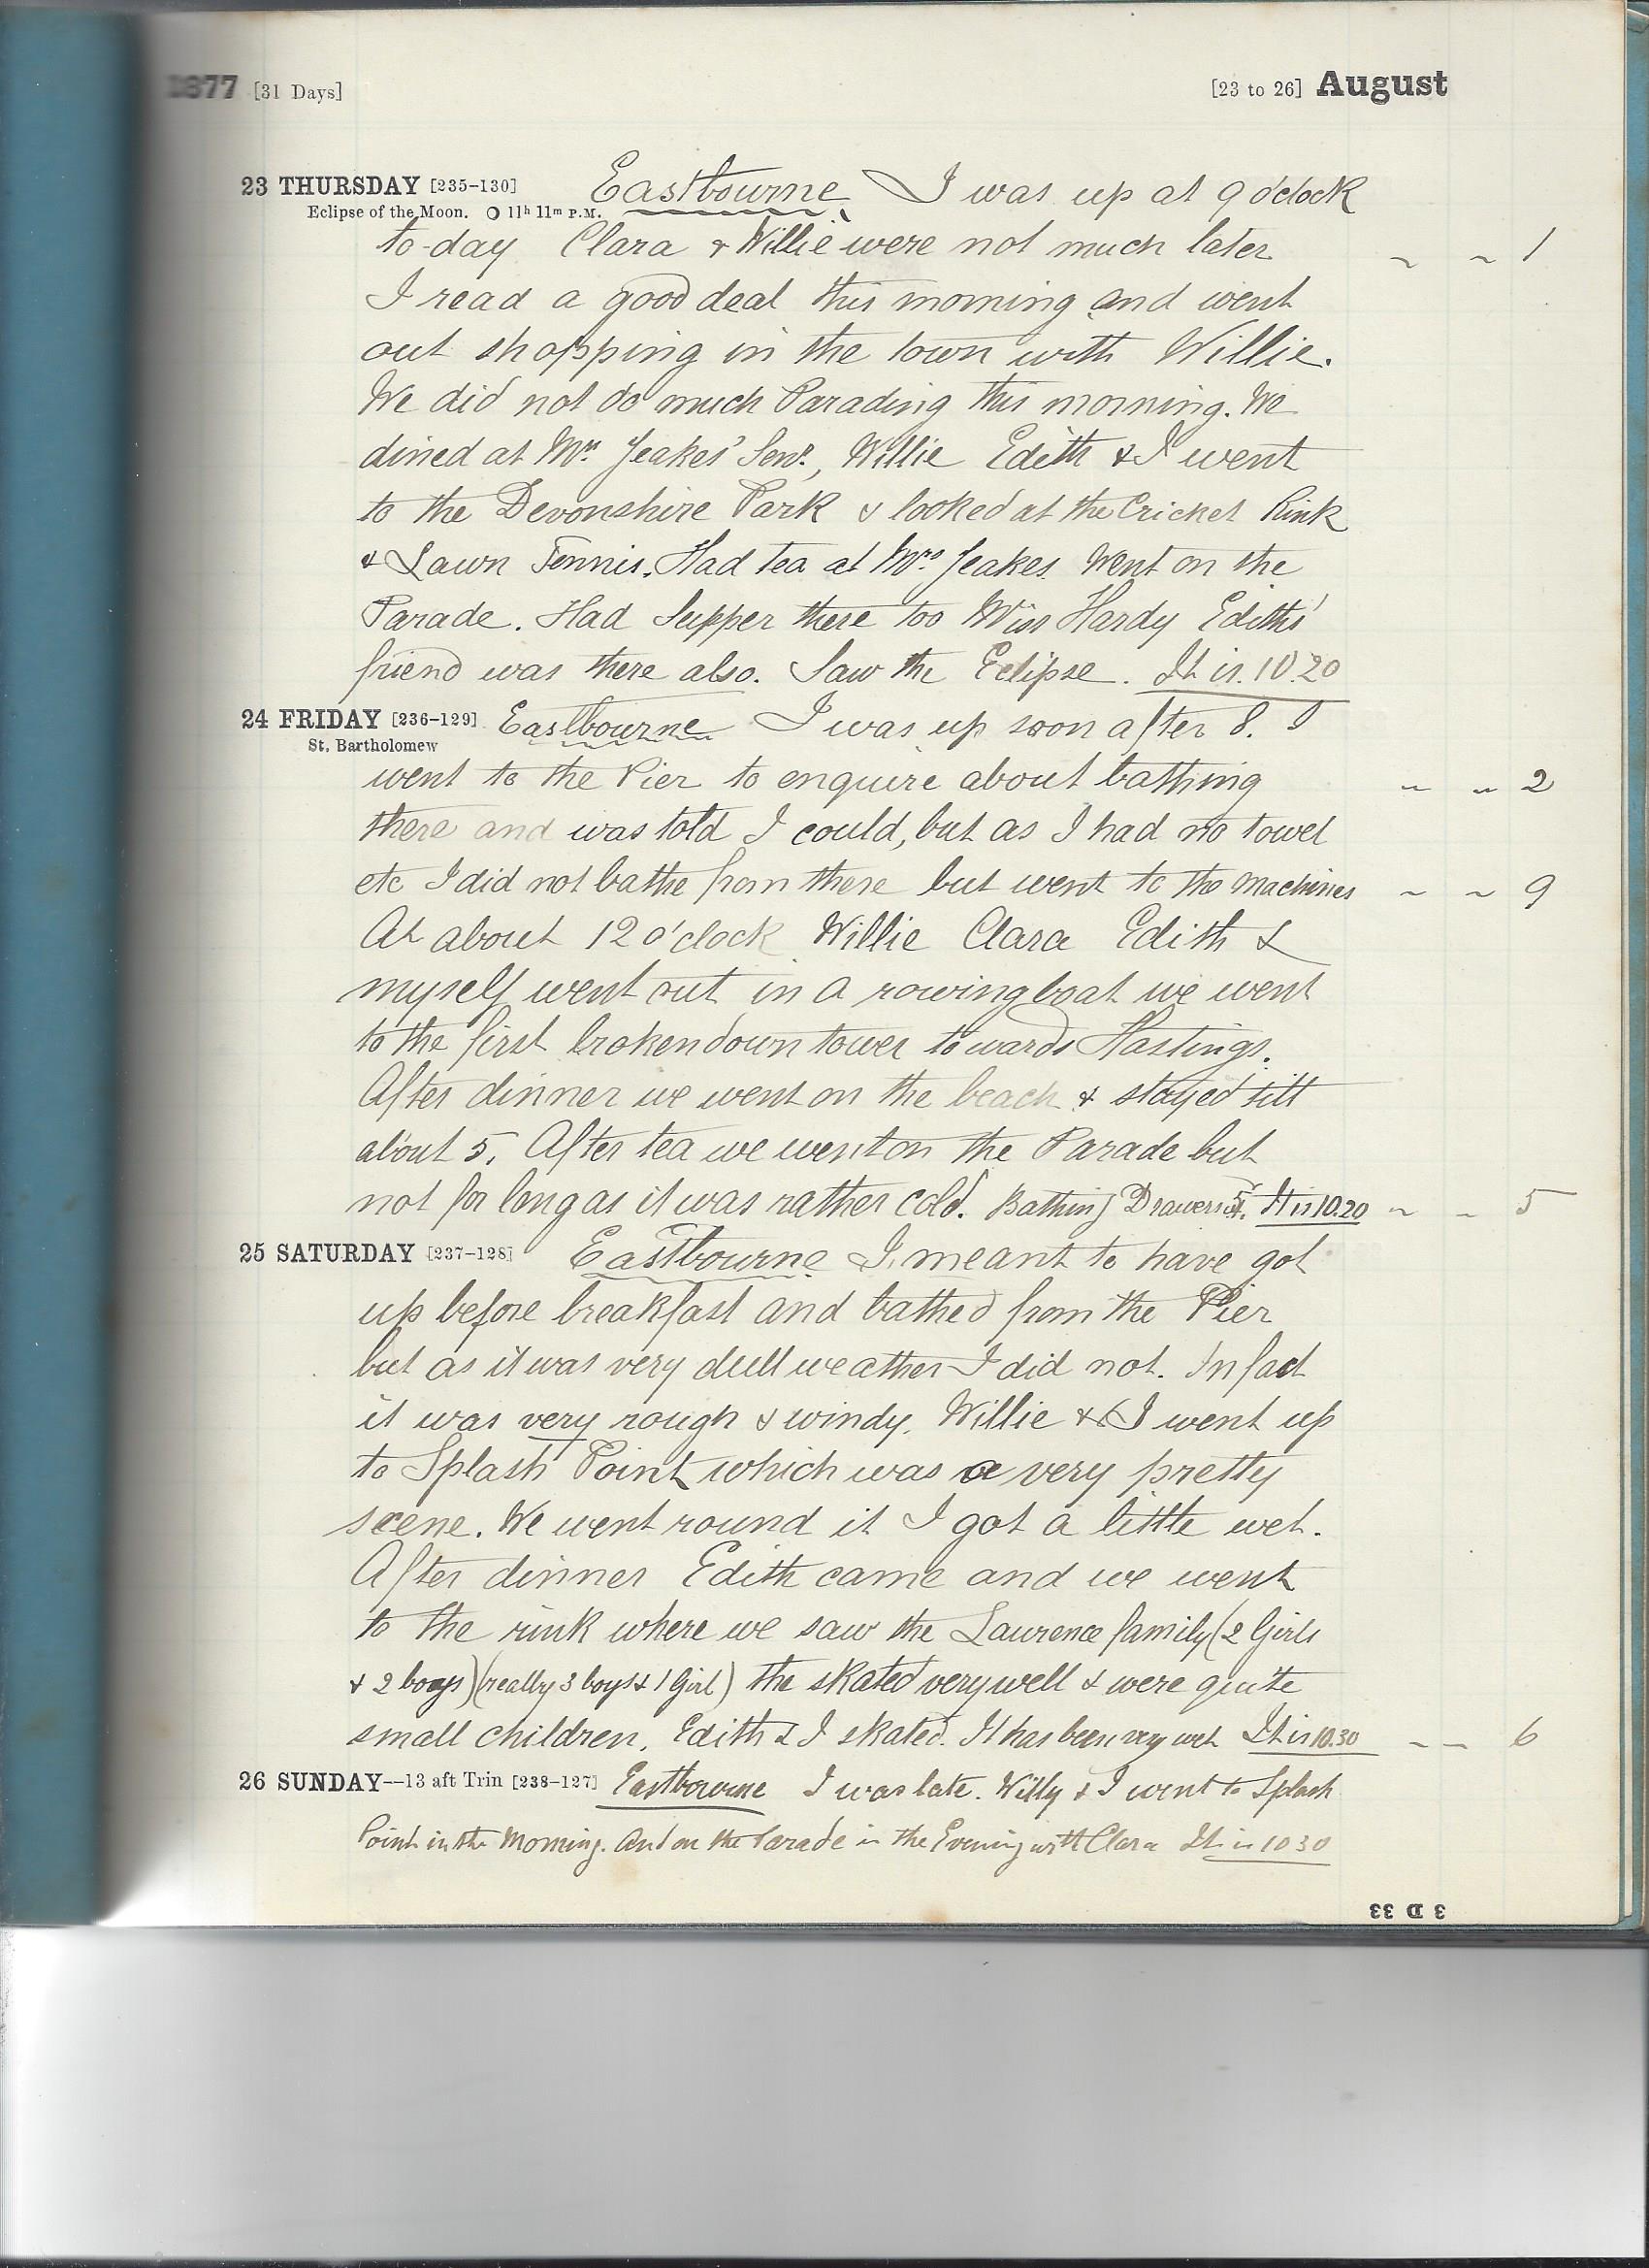 1877 [31 Days] [23 to 26] August
23 THURSDAY [235-130] Eastbourne I was up at 9 o'clock
Eclipse of the Moon. O 11h 11m P.M.
to-day Clara & Willie were not much later. ~ ~ 1
I read a good deal this morning and went
out shopping in the town with Willie.
We did not do much Parading this morning. We
dined at Mrs. Jeakes' Senr., Willie Edith & I went
to the Devonshire Park & looked at the Cricket Rink
& Lawn Tennis. Had tea at Mrs. Jeakes. Went on the
Parade. Had Supper there too Miss Hardy Ediths'
friend was there also. Saw the Eclipse. It is. 10.20
24 FRIDAY [236-129] Eastbourne I was up soon after 8. I
St. Bartholomew
went to the Pier to enquire about bathing ~ ~ 2
there and was told I could, but as I had no towel
etc I did not bathe from there but went to the Machines ~ ~ 9
At about 12 o'clock Willie Clara Edith &
myself went out in a rowing boat we went
to the first broken down tower towards Hastings.
After dinner we went on the beach & stayed till
about 5. After tea we went on the Parade but
not for long as it was rather cold. Bathing Drawers It is 10.20 ~ ~ 5
25 SATURDAY [237-128] Eastbourne I meant to have got
up before breakfast and bathed from the Pier
but as it was very dull weather I did not. In fact
it was very rough & windy. Willie & I went up
to Splash Point which was a very pretty
scene. We went round it I got a little wet.
After dinner Edith came and we went
to the rink where we saw the Laurence family (2 Girls
& 2 boys) (really 3 boys & 1 Girl) the skated very well & were quite
small children. Edith & I skated. It has been very wet It is 10.30 ~ ~ 6
26 SUNDAY--13 aft Trin [238-127] Eastbourne I was late. Willy & I went to Splash
Point in the Morning. And on the Parade in the Evening with Clara It is 10 30
3 D 33